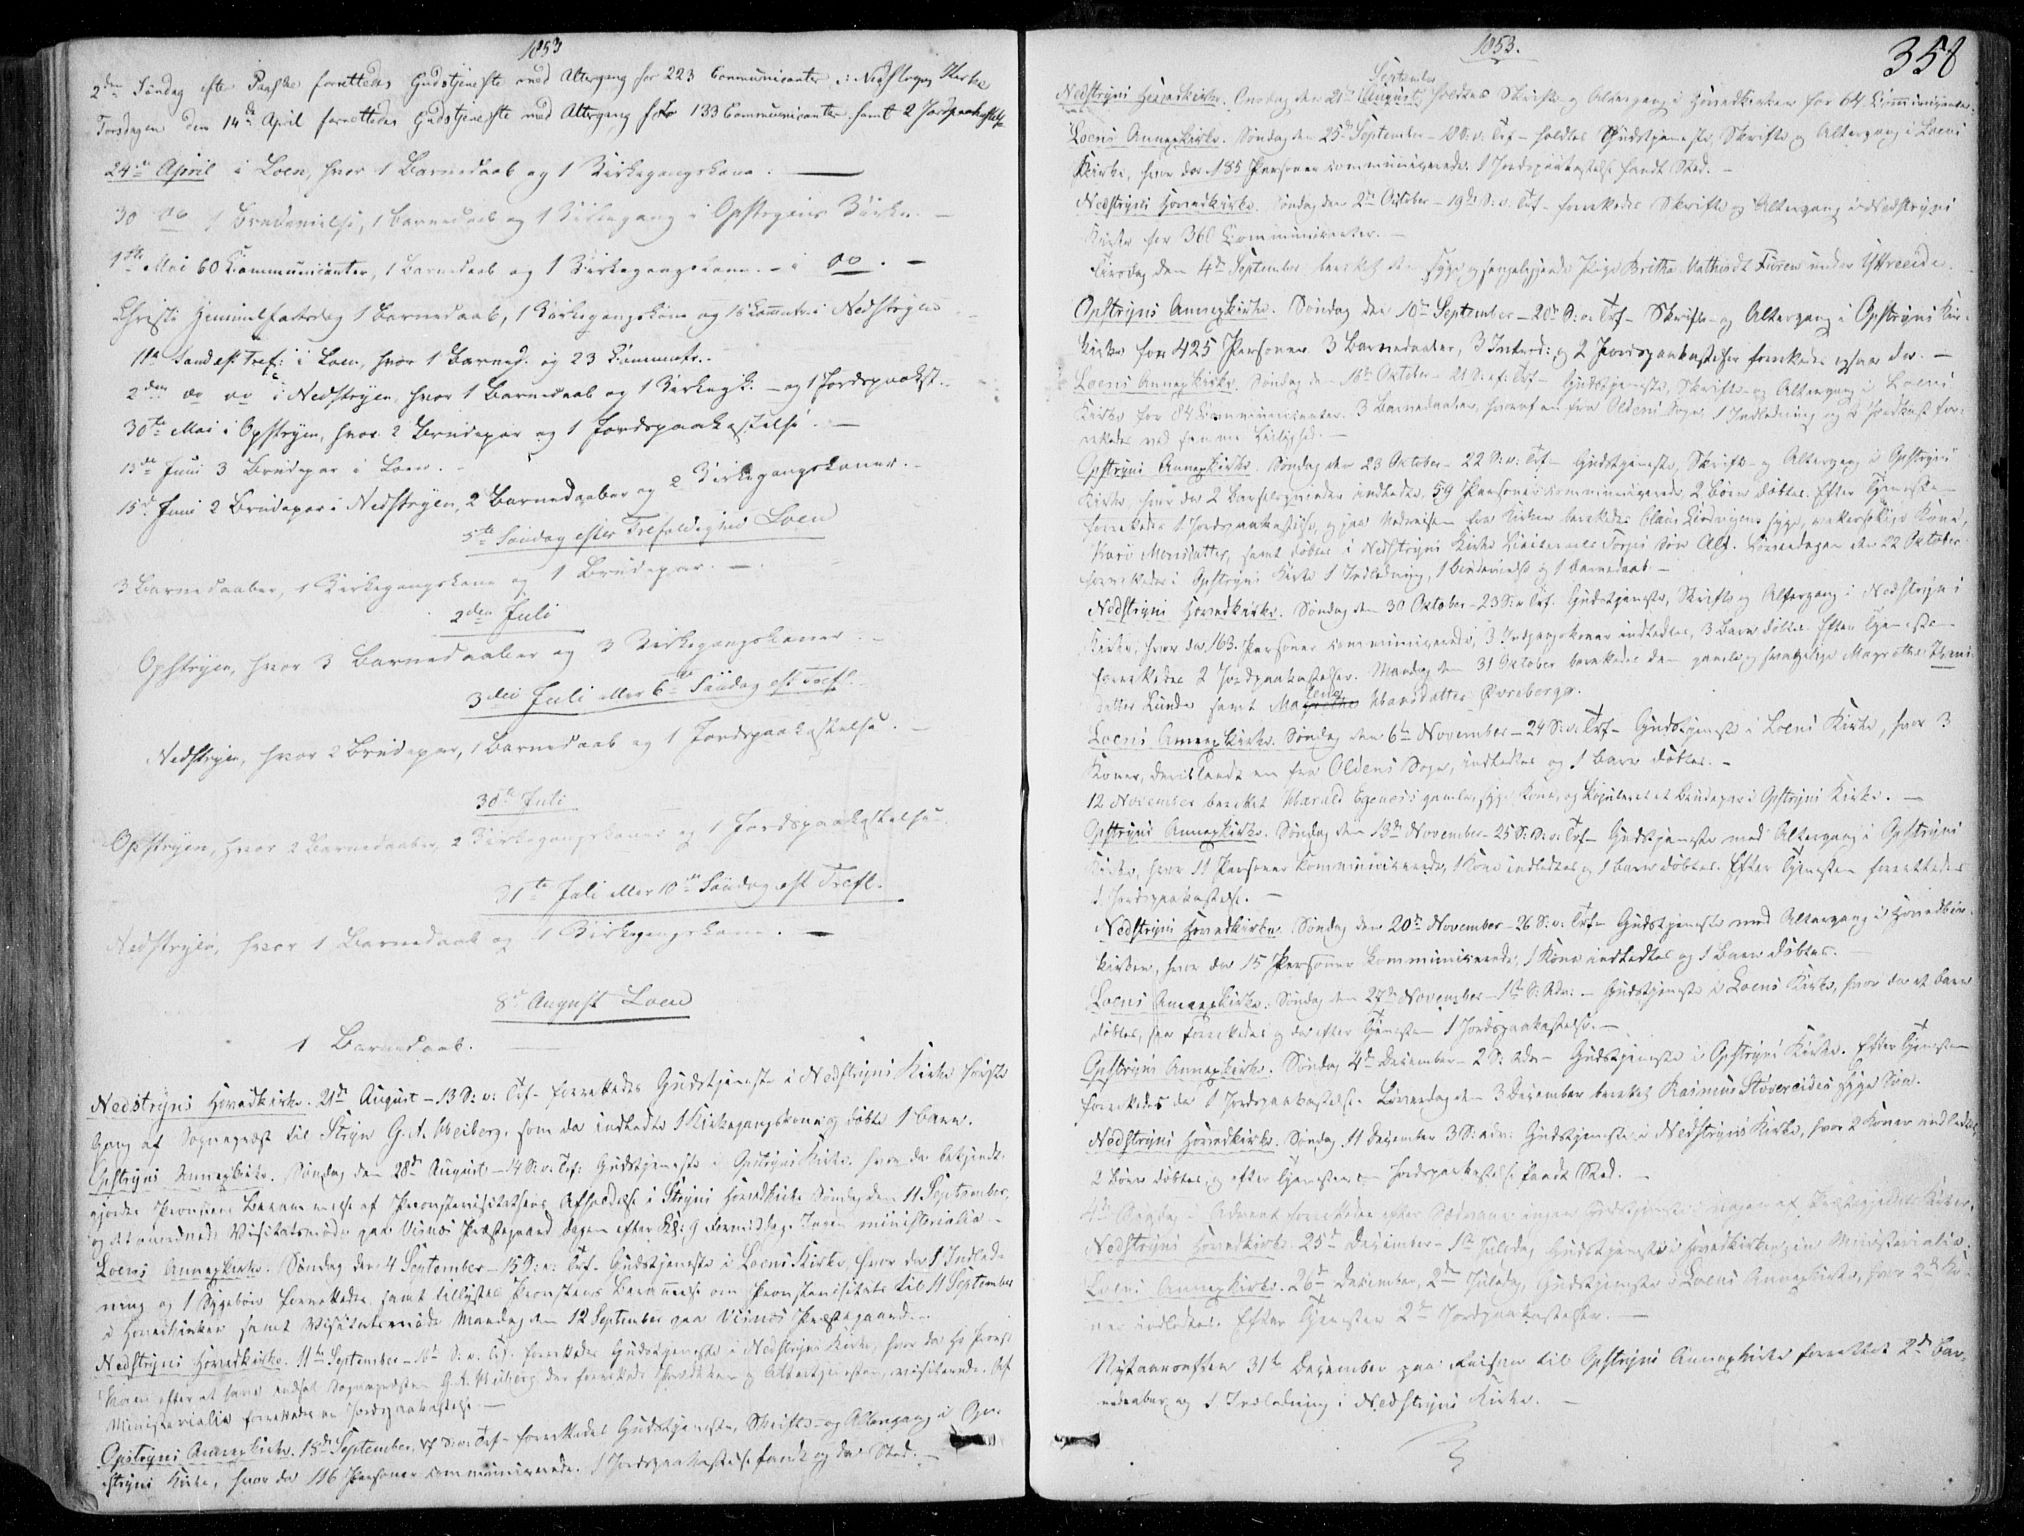 1853
2den Søndag efter Paaske forrettedes Gudstjeneste med Altergang for 223 Communicanter i Nedstryns Kirke
Torsdagen den 14de April forrettedes Gudstjeneste med Altergang for 133 Communicanter samt 2 Jordpaakastelse
24de April i Loen, hvor 1 Barnedaab og 1 Kirkegangskone. —
30 do 1 Brudevielse, 1 Barnedaab og 1 Kirkegang i Opstryens Kirke. —
1ste Mai 60 Communicanter, 1 Barnedaab og 1 Kirkegangskone. – i do. –
Christi Himmelfartsdag 1 Barnedaab, 1 Kirkegangskone og 16 Commtr. i Nedstryen
11te Sønd. eft Tref: i Loen, hvor 1 Barned. og 23 Commctr.
2den do do i Nedstryen, hvor 1 Barnedaab og 1 Kirkegk. – og 1 Jordspaakst.
30te Mai i Opstryen, hvor 2 Brudepar og 1 Jordspaakastelse. —
13de Juni 3 Brudepar i Loen. –
15de Juni 2 Brudepar i Nedstryen, 2 Barnedaaber og 2 Kirkegangskoner. –
5te Søndag efter Trefoldighed Loen
3 Barnedaaber, 1 Kirkegangskone og 1 Brudepar. —
2den Juli
Opstryen, hvor 3 Barnedaaber og 3 Kirkegangskoner. –
3die Juli eller 6te Søndag eft Trefl.
Nedstryen, hvor 2 Brudepar, 1 Barnedaab og 1 Jordspaakastelse. —
30te Juli
Opstryen, hvor 2 Barnedaaber, 2 Kirkegangskoner og 1 Jordspaakastelse
31te Juli eller 10de Søndag eft Trefl.
Nedstryen, hvor 1 Barnedaab og 1 Kirkegangskone. —
8de August Loen
1 Barnedaab. —
Nedstryns Hovedkirke. 21de August – 13 S: e: Tref – forrettedes Gudstjeneste i Nedstryns Kirke første
Gang af Sognepræst til Stryn G. A. Meiberg, som da indledte 1 Kirkegangskone og døbte 1 Barn.
Opstryns Annexkirke. Søndag den 28de August – 14 S: e: Tref: Gudstjeneste i Opstryns Kirke, hvor da bekjendt-
gjordes Provstens Berammelse af Provstevisitatsens Afholdelse i Stryns Hovedkirke Søndag den 11 September,
og det anordnede Visitatsmøde paa Visnæs Præstegaard Dagen efter Kl: 9 Formiddag. Ingen ministerialia –
Loens Annexkirke. Søndag den 4 September – 15 S: e: Tref. Gudstjeneste i Loens Kirke, hvor der 1 Indled-
ning og 1 forrettedes, samt tillystes Provstens Berammelse om Provstevisitats til 11 September
i Hovedkirken samt Visitatsmøde Mandag den 12 September paa Visnæs Præstegaard. –
Nedstryns Hovedkirke. 11te September – 16de S: e: Tref. forrettedes Gudstjeneste i Nedstryns Kirke, hvor da Hr Provst
efter at have indsat Sognepræsten G. A. Meiberg, der forrettede Prædiken og Altertjenesten, visiterede. Af
Ministerialia forrettedes en Jordspaakastelse. —
Opstryns Annexkirke. 18de September. 17 S: e: Tref – forrettedes Gudstjeneste, Skrifte- og Altergang i Op-
stryns Kirke, hvor da 116 Personer communicerede. 1 Jordspaakastelse fandt og da Sted. –
1853.
358
September
Nedstryns Hovedkirke. Onsdag den 21de August holdtes Skrifte- og Altergang i Hovedkirken for 64 Communicanter.
Loens Annexkirke. Søndag den 25de September – 18 S: e: Tref – holdtes Gudstjeneste, Skrifte- og Altergang i Loens
Kirke, hvor der 185 Personer communicerede. 1 Jordspaakastelse fandt Sted. –
Nedstryns Hovedkirke. Søndag den 2den Oktober – 19de S: e: Tref – forrettedes Skrifte- og Altergang i Nedstryns
Kirke for 360 Communicanter. –
Tirsdag den 4de September berettet den syge og sengeliggende Pige Britha Mathisdt Furen under Yttreeide.
Opstryns Annexkirke. Søndag den 10de September – 20de S: e: Tref – Skrifte- og Altergang i Opstryns Kir-
kirke for 425 Personer. 3 Barnedaaber, 3 Introd: og 2 Jordspaakastelser forrettedes ogsaa der. –
Loens Annexkirke. Søndag den 16de Oktober – 21 S: ef: Tref – Gudstjeneste, Skrifte- og Altergang i Loens
Kirke for 84 Communicanter. 3 Barnedaaber, hvoraf en fra Oldens Sogn, 1 Indledning og 2 Jordkast for-
rettedes ved samme Leilighed. –
Opstryns Annexkirke. Søndag den 23 Oktober – 22 S: e: Tref – Gudstjeneste, Skrifte- og Altergang i Opstryns
Kirke hvor da 2 indledte, 59 Personer communicerede, 2 Børn døbtes. Efter Tjeneste
forrettedes 1 Jordspaakastelse, og paa Nedreisen fra Kirken berettedes syge Kone,
Kari Monsdatter, samt døbtes i Nedstryns Kirke Søn Alf. Løverdagen den 22 Oktober
forrettedes i Opstryns Kirke 1 Indledning, 1 Brudevielse og 1 Barnedaab. –
Nedstryns Hovedkirke. Søndag den 30 Oktober – 23 S: e: Tref. Gudstjeneste, Skrifte- og Altergang i Nedstryns
Kirke, hvor der 163 Personer communicerede, 3 indledtes, 3 Barn døbtes. Efter Tjeneste
forrettedes 2 Jordspaakastelser. Mandag den 31 Oktober berettedes den gamle og svagelige Magrethe
datter Lunde samt Malene Hansdatter Øvreberge.
Loens Annexkirke. Søndag den 6te November – 24 S: e: Tref – Gudstjeneste i Loens Kirke, hvor 3
Koner, deriblandt en fra Oldens Sogn, indledtes og 1 Barn døbtes. –
12 November berettet Harald gamle, syge Kone, og Copuleret et Brudepar i Opstryns Kirke. —
Opstryns Annexkirke. Søndag den 13de November – 25 S: e: Tref – Gudstjeneste med Altergang i Opstryns
Kirke, hvor 11 Personer kommunicerede, 1 Kone indledtes og 1 Barn døbtes. Efter Tjenesten forrettedes
1 Jordspaakastelse. —
Nedstryns Hovedkirke. Søndag den 20de November – 26 S: e: Tref – Gudstjeneste med Altergang i Hoved-
kirken, hvor der 15 Personer kommunicerede, 1 Kone indledtes og 1 Barn døbtes. –
Loens Annexkirke: Søndag den 27de November – 1ste S: Adv: – Gudstjeneste i Loens Kirke, hvor da et Barn
døbtes, forrettedes og da efter Tjenesten 1 Jordspaakastelse. –
Opstryns Annexkirke. Søndag 4de December – 2 S: Adv – Gudstjeneste i Opstryns Kirke. Efter Tjenesten
forrettedes da 1 Jordspaakastelse. Løverdag den 3 December berettet Rasmus Støvereides syge Søn.
Nedstryns Hovedkirke. Søndag 11 December 3 S: adv: Gudstjeneste i Nedstryns Kirke, hvor 2 Koner indledtes,
2 Børn døbtes, og efter Tjenesten en Jordspaakastelse fandt Sted. –
4de Søndag i Advent forrettedes efter Sædvane ingen Gudstjeneste i nogen af Præstegjeldets Kirker.
Nedstryns Hovedkirke. 25de December – 1ste Juledag Gudstjeneste i Hovedkirken, ingen Ministerialia.
Loens Annexkirke. 26de December, 2den Juledag, Gudstjeneste i Loens Annexkirke, hvor 2de Ko-
ner indledtes. Efter Tjenesten 2de Jordspaakastelser. —
Nytaarsaften 31te December paa Reisen til Opstryns Annexkirke forrettet 2de Bar-
nedaaber og 1 Indledning i Nedstryns Kirke. –